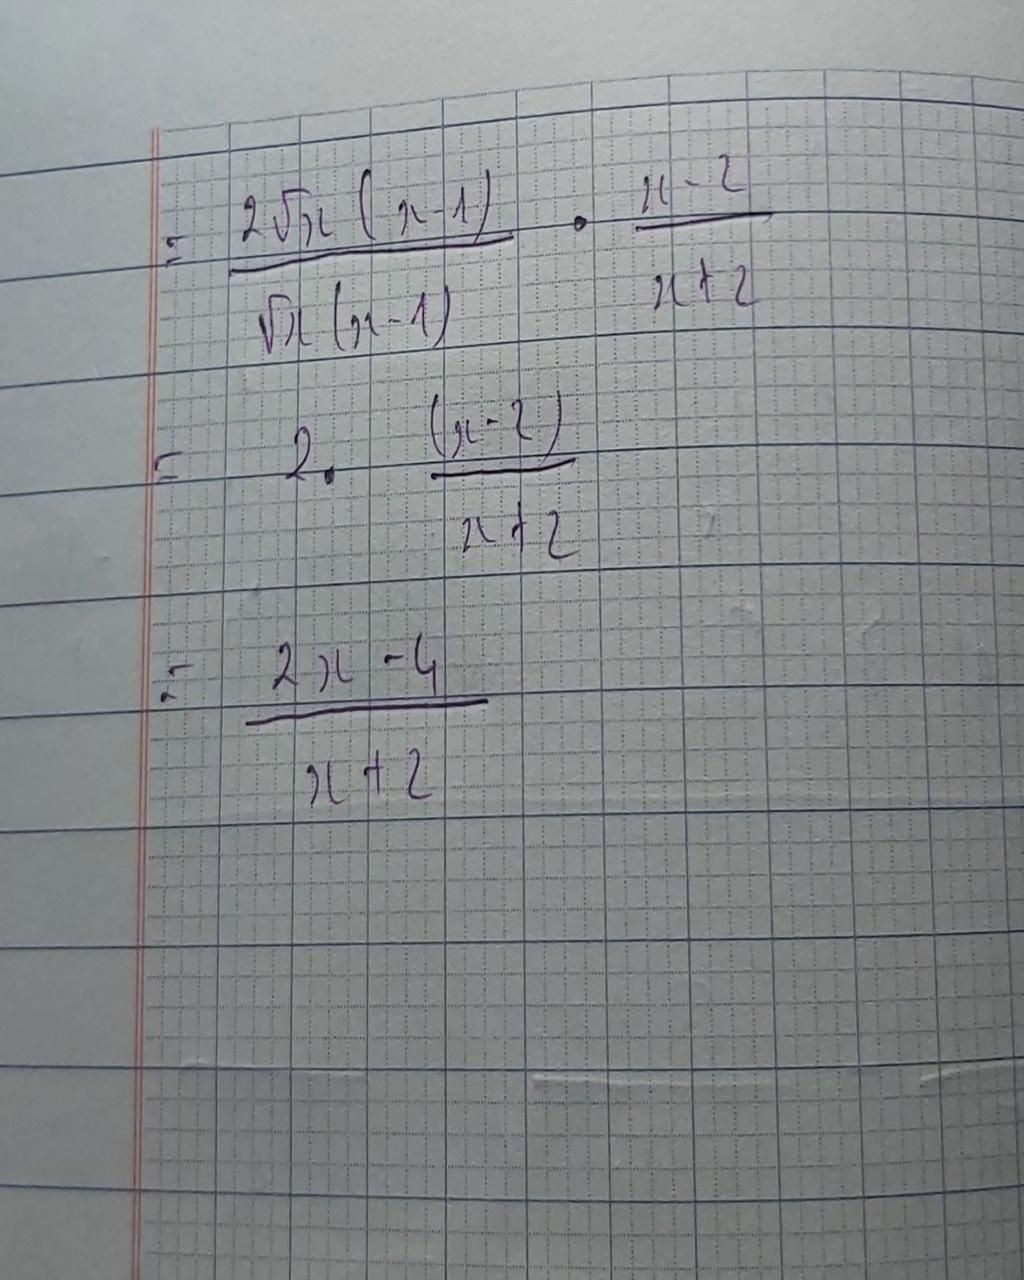 = 2√x (x-1) / √x (x-1) · x-2 / x+2
= 2. (x-2) / x+2
= 2x-4 / x+2